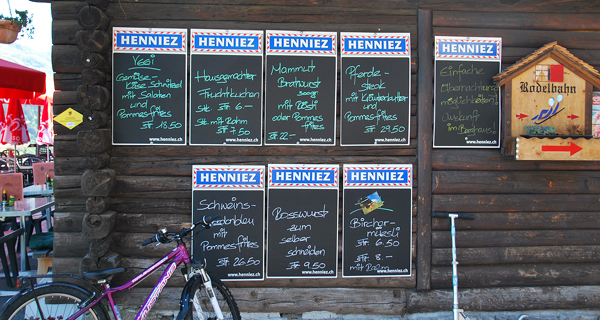 HENNIEZ
Vegi
Gemüse-
Käse Schnitzel
mit Salaten
und
Pommesfrites
SFr 18.50
www.henniez.ch
HENNIEZ
Hausgemachter
Fruchtkuchen
Stk 6.–
Stk mit Rahm
SFr 7.50
www.henniez.ch
HENNIEZ
Mammut
Bratwurst
300gr
mit Rösti
oder Pommes
frites
SFr 22.–
www.henniez.ch
HENNIEZ
Pferde-
steak
mit Kräuterbutter
und
Pommesfrites
SFr 29.50
www.henniez.ch
HENNIEZ
Einfache
Übernachtungs
möglichkeiten!
Auskunft
im Berghaus!
www.henniez.ch
Rodelbahn
HENNIEZ
Schweins-
cordonbleu
mit
Pommesfrites
SFr 26.50
www.henniez.ch
HENNIEZ
Bosswurst
zum
selber
schneiden
SFr 9.50
www.henniez.ch
HENNIEZ
Bircher-
müesli
SFr 6.50
SFr 8.–
mit Rahm
www.henniez.ch